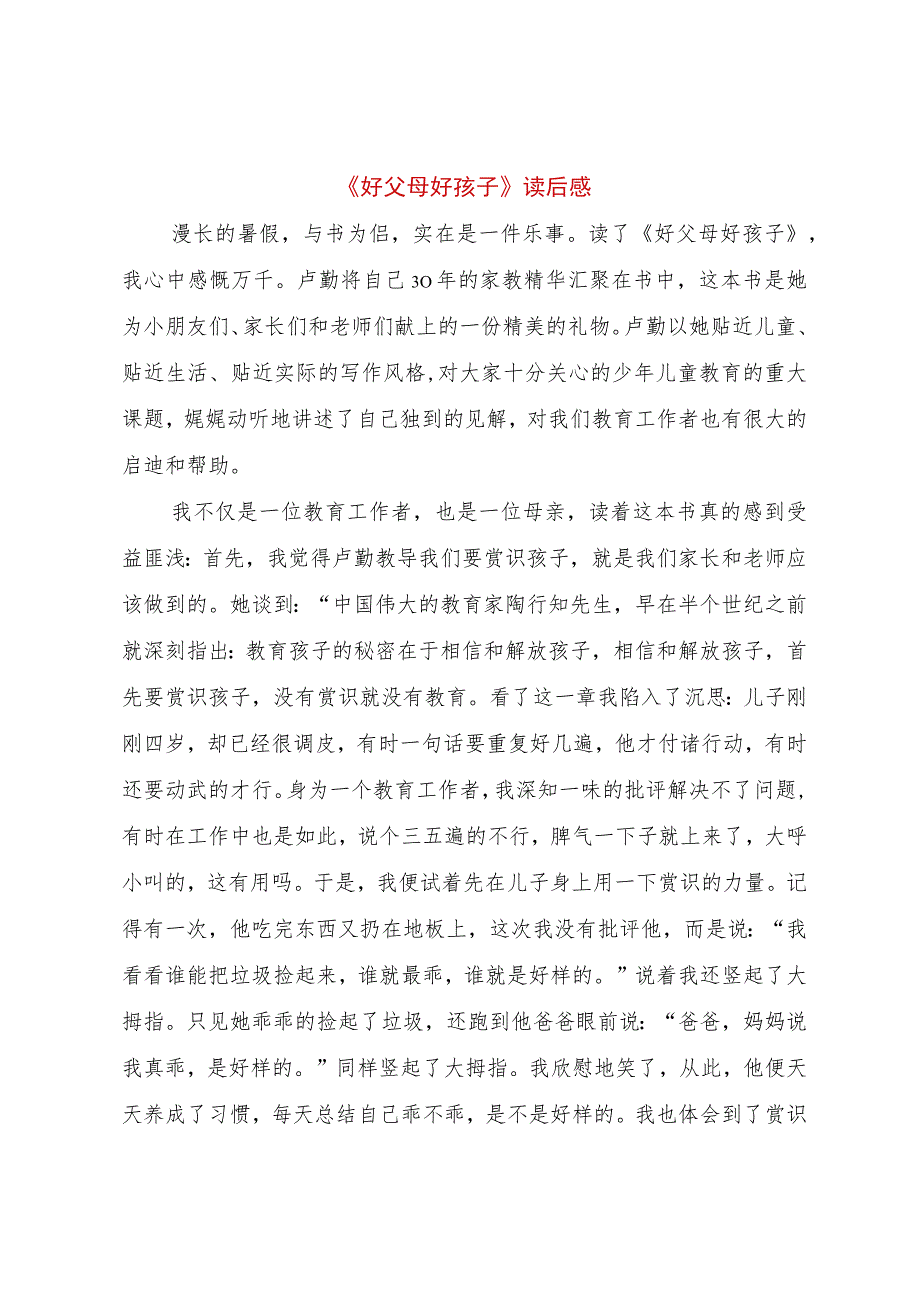 《好父母好孩子》读后感
漫长的暑假，与书为侣，实在是一件乐事。读了《好父母好孩子》，
我心中感慨万千。卢勤将自己 3O 年的家教精华汇聚在书中，这本书是她
为小朋友们、家长们和老师们献上的一份精美的礼物。卢勤以她贴近儿童、
贴近生活、贴近实际的写作风格,对大家十分关心的少年儿童教育的重大
课题，娓娓动听地讲述了自己独到的见解，对我们教育工作者也有很大的
启迪和帮助。
我不仅是一位教育工作者，也是一位母亲，读着这本书真的感到受
益匪浅：首先，我觉得卢勤教导我们要赏识孩子，就是我们家长和老师应
该做到的。她谈到：“中国伟大的教育家陶行知先生，早在半个世纪之前
就深刻指出：教育孩子的秘密在于相信和解放孩子，相信和解放孩子，首
先要赏识孩子，没有赏识就没有教育。看了这一章我陷入了沉思：儿子刚
刚四岁，却已经很调皮，有时一句话要重复好几遍，他才付诸行动，有时
还要动武的才行。身为一个教育工作者，我深知一味的批评解决不了问题，
有时在工作中也是如此，说个三五遍的不行，脾气一下子就上来了，大呼
小叫的，这有用吗。于是，我便试着先在儿子身上用一下赏识的力量。记
得有一次，他吃完东西又扔在地板上，这次我没有批评他，而是说：“我
看看谁能把垃圾捡起来，谁就最乖，谁就是好样的。”说着我还竖起了大
拇指。只见她乖乖的捡起了垃圾，还跑到他爸爸眼前说：“爸爸，妈妈说
我真乖，是好样的。”同样竖起了大拇指。我欣慰地笑了，从此，他便天
天养成了习惯，每天总结自己乖不乖，是不是好样的。我也体会到了赏识